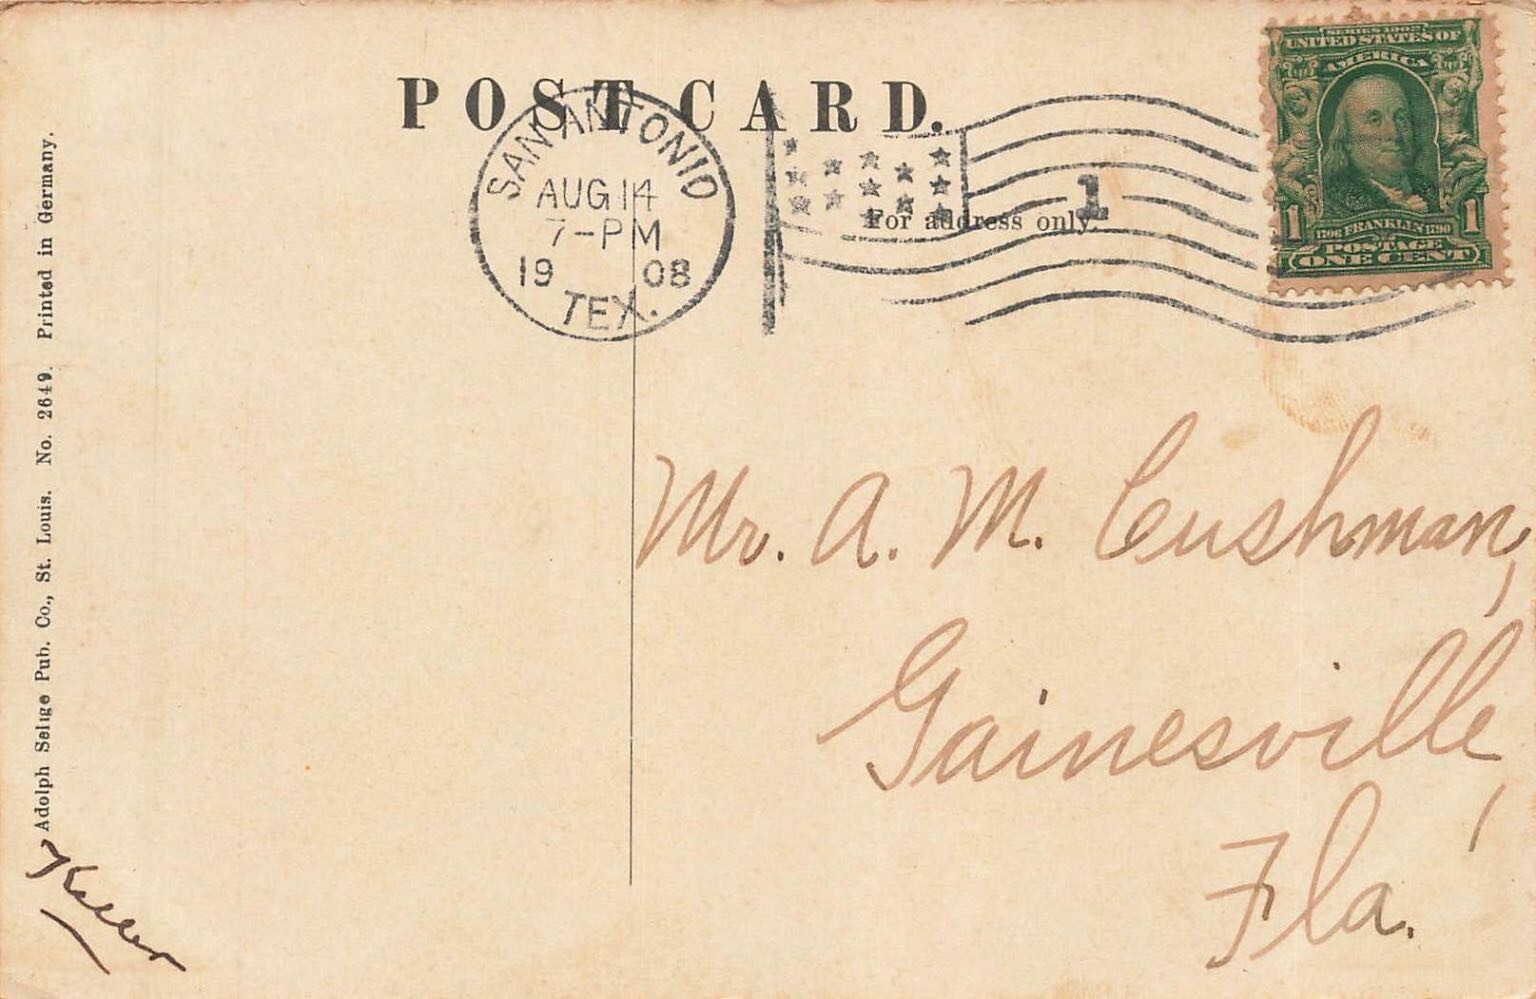 POST CARD.
SAN ANTONIO
AUG 14
7-PM
1908
TEX.
1
For address only.
SERIES 1902
UNITED STATES OF
AMERICA
1 1
1706 FRANKLIN 1790
POSTAGE
ONE CENT
Mr. A. M. Cushman,
Gainesville,
Fla.
Adolph Selige Pub. Co., St. Louis. No. 2649. Printed in Germany.
Keller